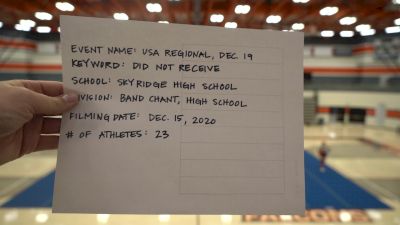 EVENT NAME: USA REGIONAL, DEC. 19
KEYWORD: DID NOT RECEIVE
SCHOOL: SKYRIDGE HIGH SCHOOL
DIVISION: BAND CHANT, HIGH SCHOOL
FILMING DATE: DEC. 15, 2020
# OF ATHLETES: 23